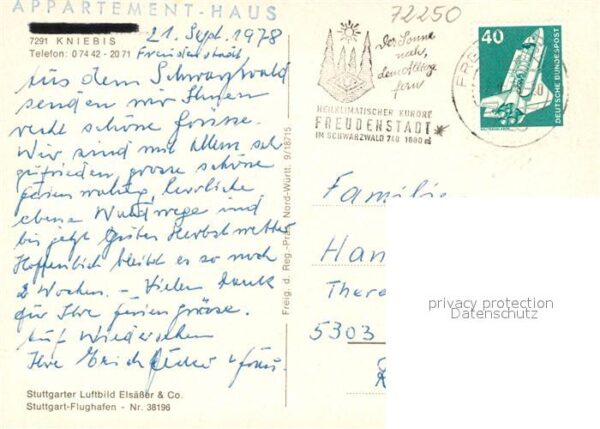 APPARTEMENT-HAUS
7291 KNIEBIS
Telefon: 0 74 42 - 20 71
21. Sept. 1978
Freudenstadt
Aus dem Schwarzwald
senden wir Ihnen
recht schöne Grüsse.
Wir sind mit allem sehr
zufrieden, grosse schöne
herrliche
ebene Waldwege und
bis jetzt gutes Herbstwetter
Hoffentlich bleibt es so noch
2 Wochen. - Vielen Dank
für Ihre Feriengrüsse.
Auf Wiedersehen
Ihre Erich u. Frau.
Stuttgarter Luftbild Elsäßer & Co.
Stuttgart-Flughafen - Nr. 38196
Freig. d. Reg.-Präs. Nord-Württ. 9/18715
72250
Der Sonne
nah,
dem Alltag
fern
HEILKLIMATISCHER KURORT
FREUDENSTADT
IM SCHWARZWALD 740 1000 m
40
DEUTSCHE BUNDESPOST
Familie
Han
There
5303
privacy protection
Datenschutz